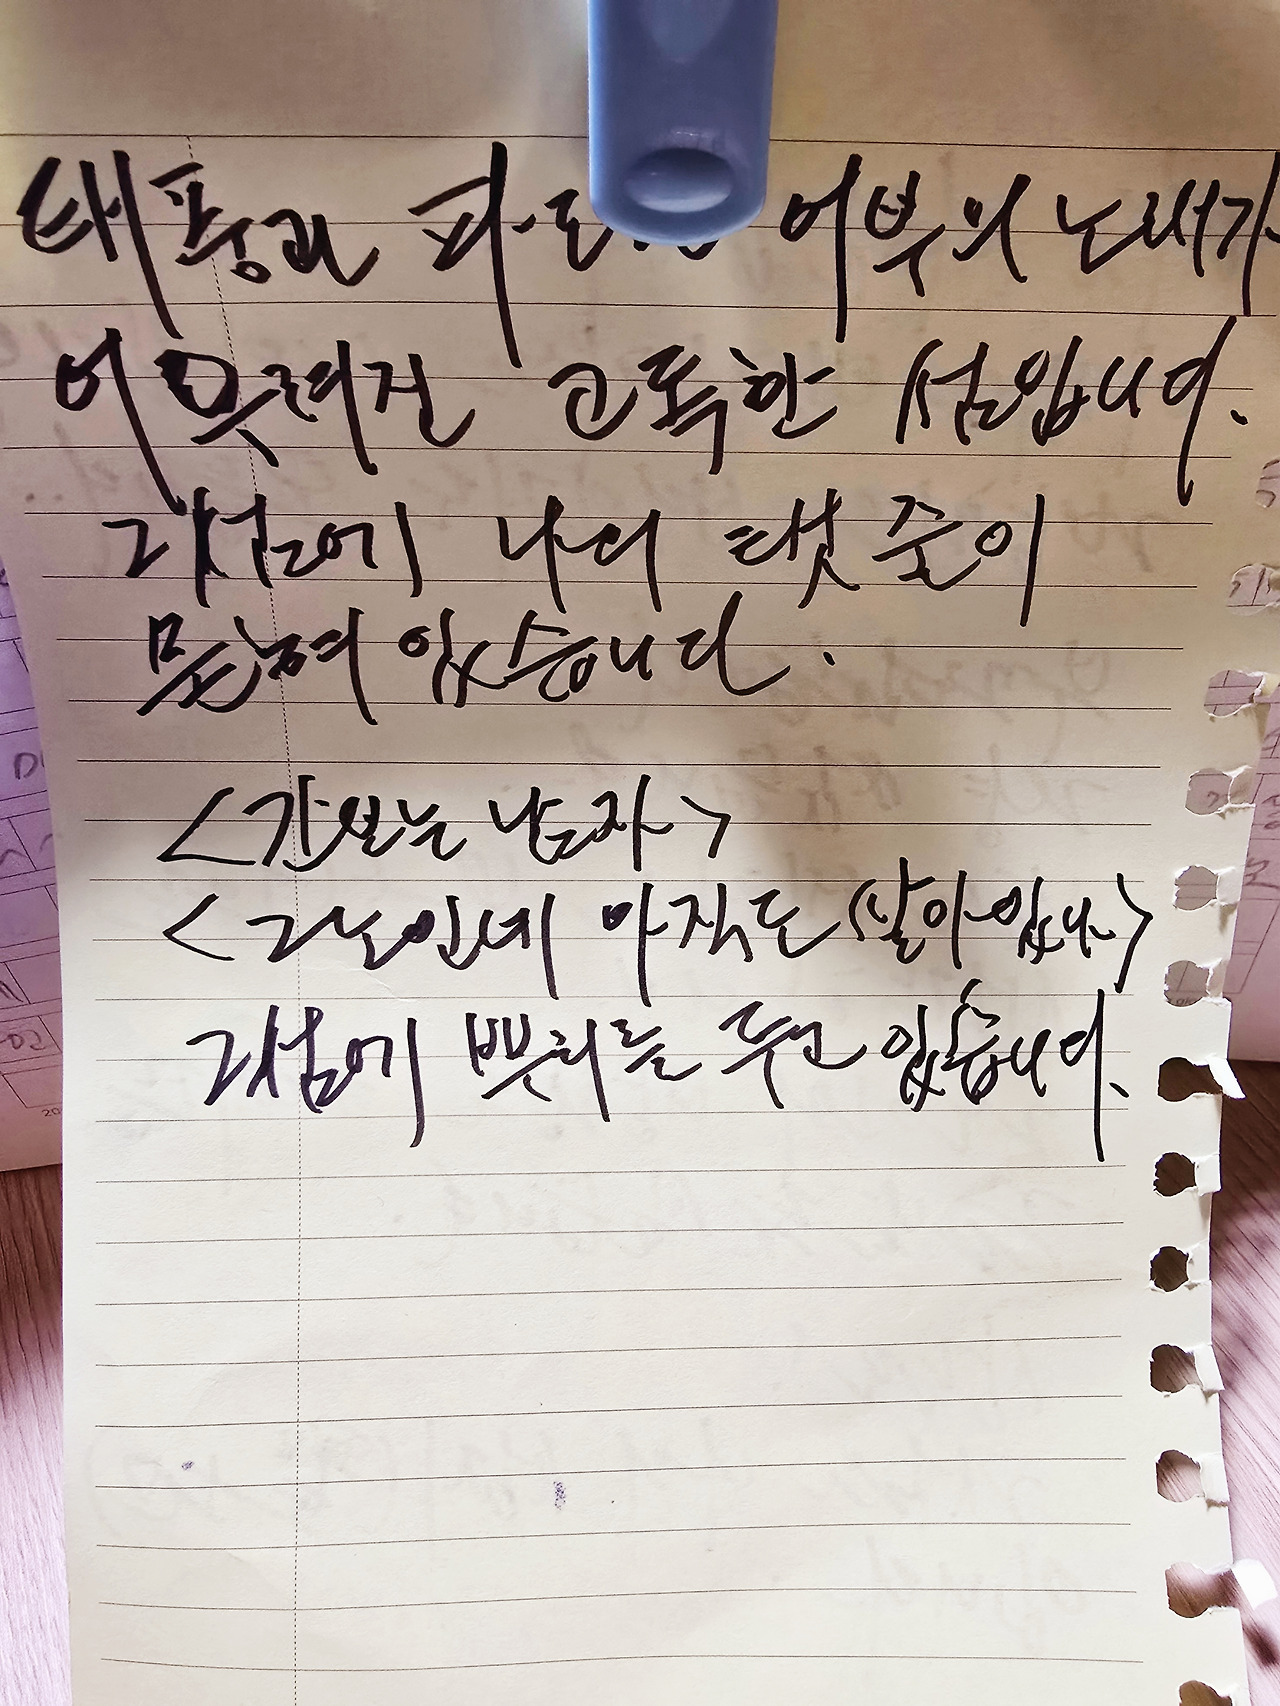 태풍과 파도 어부의 노래가
어우러진 고독한 섬입니다.
그섬에 나의 탯줄이
묻혀 있습니다.
<간보는 남자>
<그노인네 아직도 살아있나>
그섬에 뿌리를 두고 있습니다.